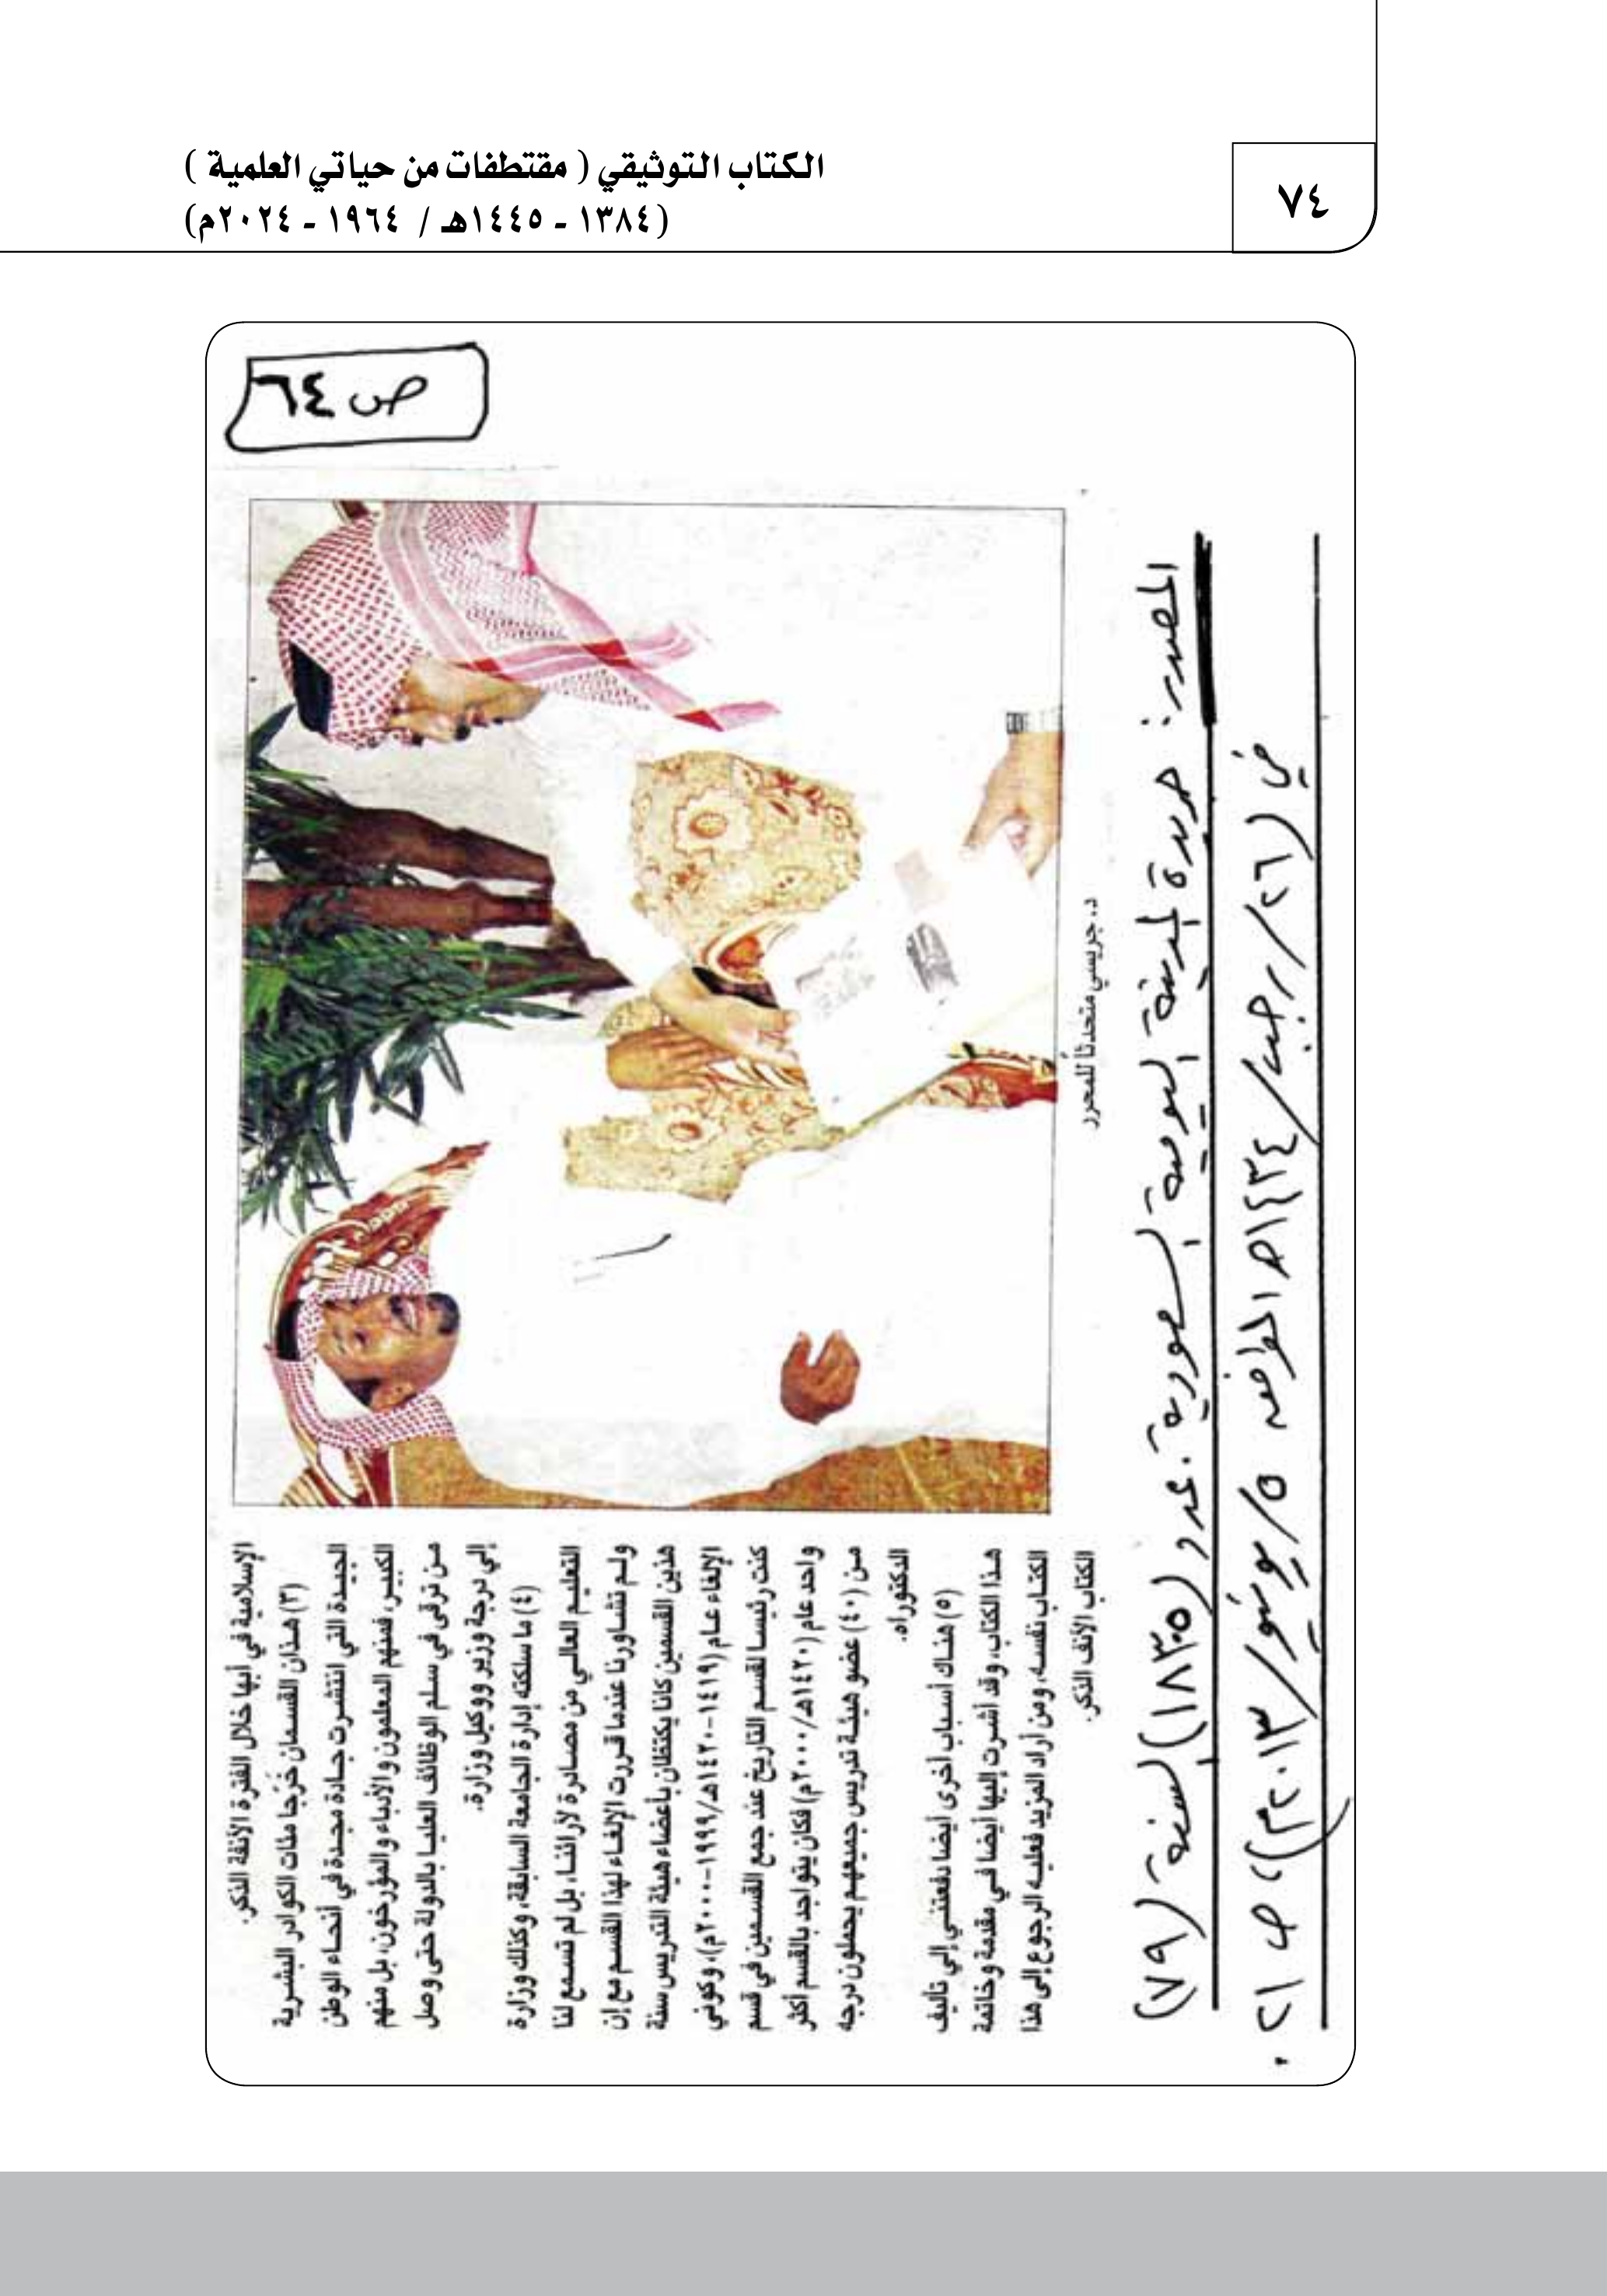 ٧٤
الكتاب التوثيقي ( مقتطفات من حياتي العلمية )
(١٣٨٤ - ١٤٤٥هـ / ١٩٦٤ - ٢٠٢٤م)
ص ٦٤
د. جريسي متحدثاً للمحرر
الإسلامية في أبها خلال الفترة الآنفة الذكر.
(٣) هذان القسمان خَرّجا مئات الكوادر البشرية
الجيدة التي انتشرت جادة مجدة في أنحاء الوطن
الكبير، فمنهم المعلمون والأدباء والمؤرخون، بل منهم
من ترقى في سلم الوظائف العليا بالدولة حتى وصل
إلى درجة وزير ووكيل وزارة.
(٤) ما سلكته إدارة الجامعة السابقة، وكذلك وزارة
التعليم العالي من مصادرة لآرائنا، بل لم تسمع لنا
ولم تشاورنا عندما قررت الإلغاء لهذا القسم مع إن
هذين القسمين كانا يكتظان بأعضاء هيئة التدريس سنة
الإلغاء عام (١٤١٩-١٤٢٠هـ/١٩٩٩-٢٠٠٠م)، وكوني
كنت رئيسا لقسم التاريخ عند جمع القسمين في قسم
واحد عام (١٤٢٠هـ/٢٠٠٠م) فكان يتواجد بالقسم أكثر
من (٤٠) عضو هيئة تدريس جميعهم يحملون درجه
الدكتوراه.
(٥) هناك أسباب أخرى أيضا دفعتني إلي تأليف
هذا الكتاب، وقد أشرت إليها أيضا في مقدمة وخاتمة
الكتاب نفسه، ومن أراد المزيد فعليه الرجوع إلى هذا
الكتاب الأنف الذكر.
المصدر: جريدة المدينة اليومية السعودية. عدد (١٨٣٠٥) السنة (٧٩)
في (٢٦/رجب/١٤٣٤هـ الموافق ٥/يونيو/٢٠١٣م)، ص ٢١.